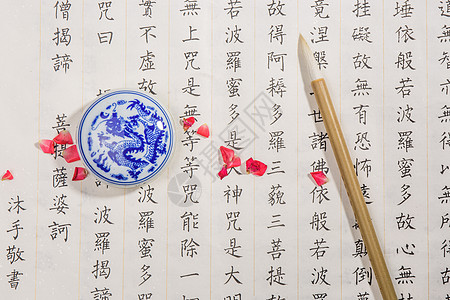 無智亦無得以無所得
埵依般若波羅蜜多故心無
罣礙故無有恐怖遠顛倒
竟涅槃三世諸佛依般若波
故得阿耨多羅三藐三菩提
若波羅蜜多是大神咒是大
無上咒是無等等咒能除一
實不虛故波羅蜜多
咒曰 波羅揭諦
僧揭諦 菩提薩婆訶
沐手敬書